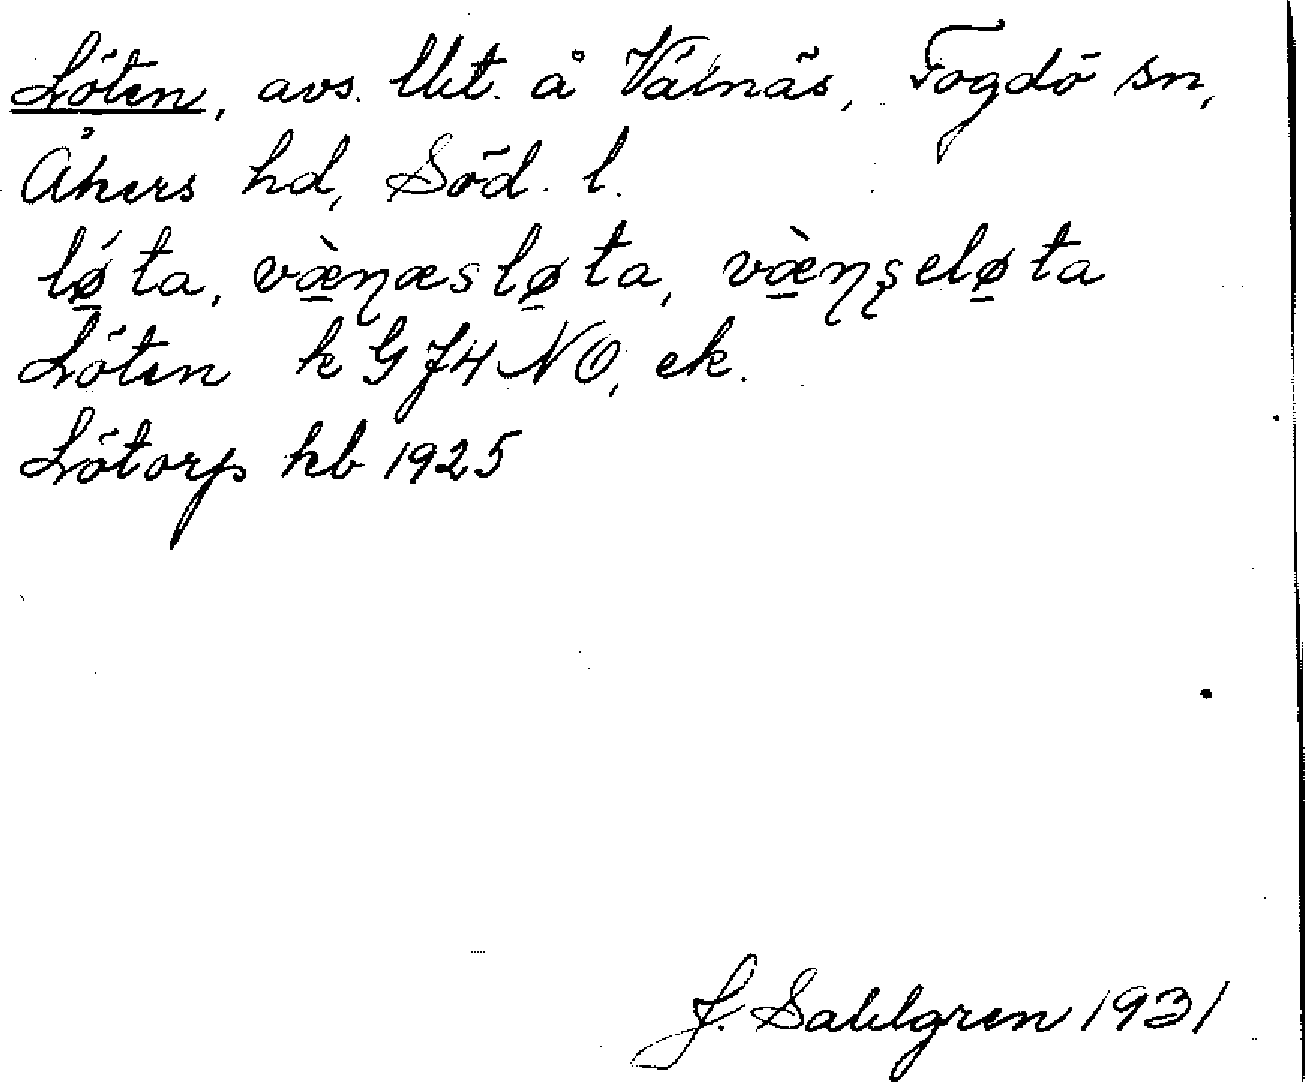 Löten, avs. lht. å Valnäs, Fogdö sn,
Åkers hd, Söd. l.
lǿ̱ta, væ̱̀ɳæslø̱ta, væ̱̀ɳʂelø̱ta
Löten k GJ4 NO, ek.
Lötorp hb 1925
J. Sahlgren 1931